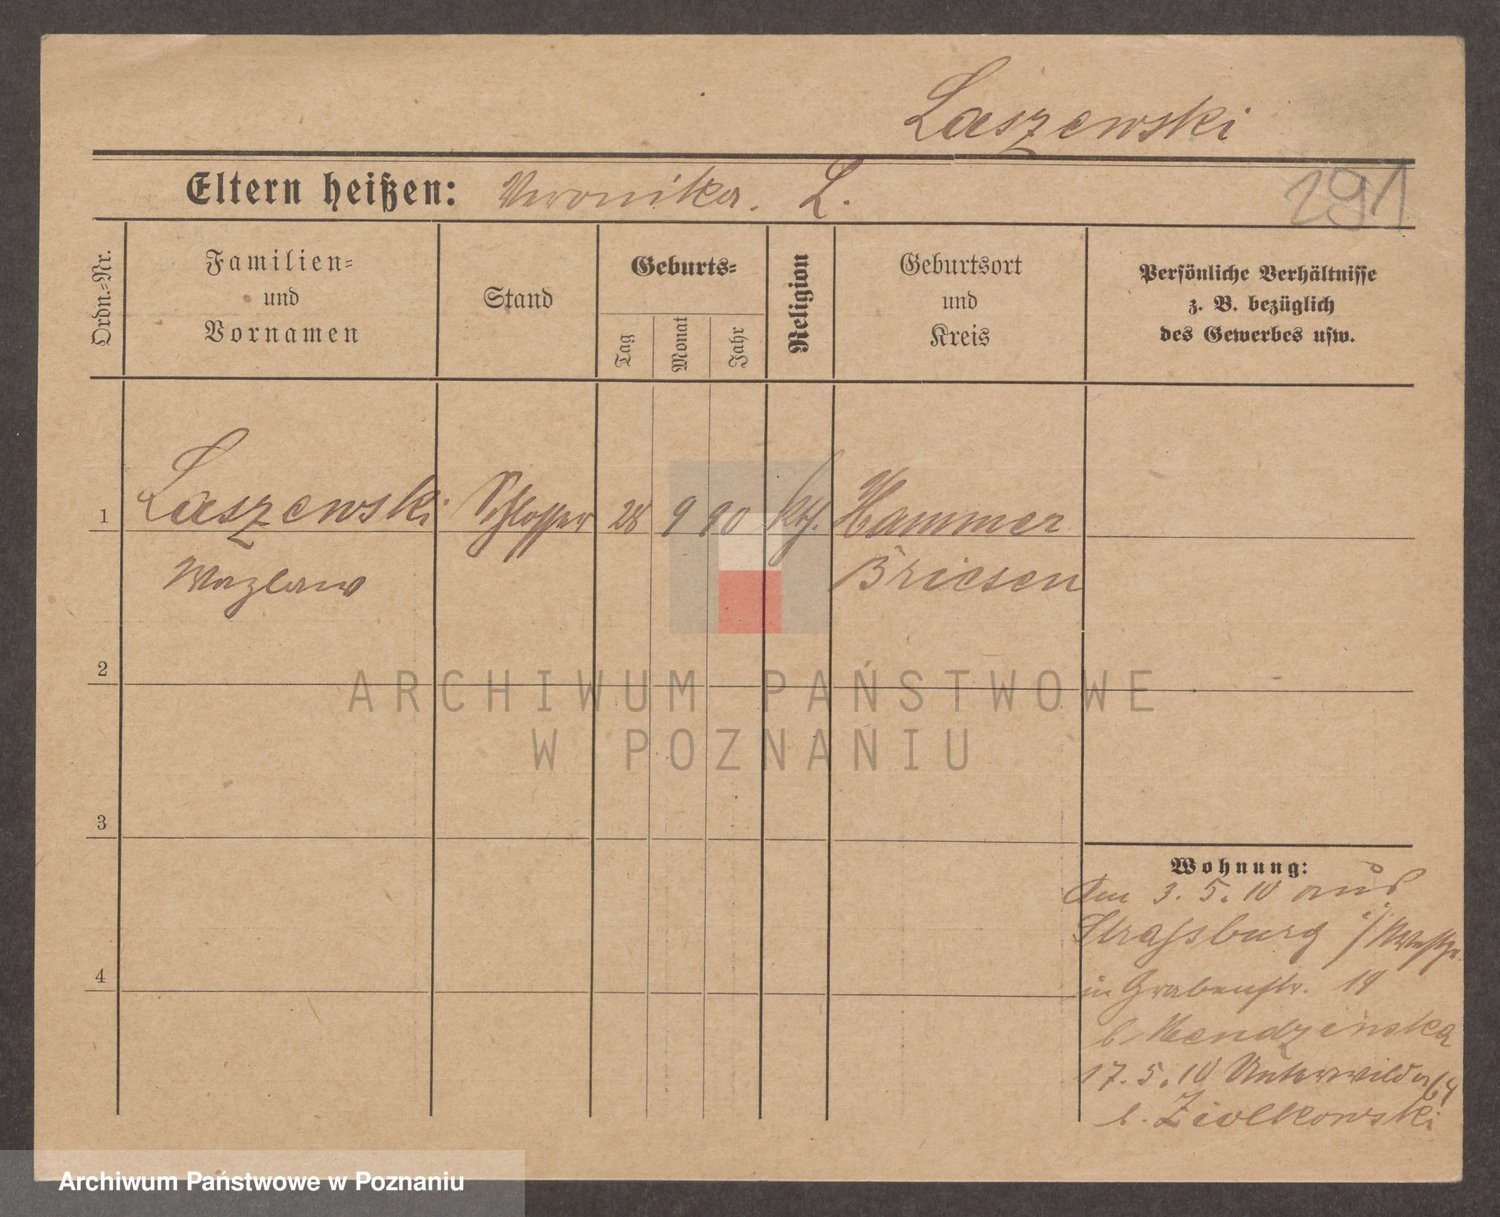 Laszewski
Eltern heißen: Veronika. L.
291
Ordn.-Nr.
Familien-
und
Vornamen
Stand
Geburts-
Tag
Monat
Jahr
Religion
Geburtsort
und
Kreis
Persönliche Verhältnisse
z. B. bezüglich
des Gewerbes usw.
1 Laszewski Schlosser 28 9 90 kth. Hammer
Wazlaw Briesen
2
ARCHIWUM PAŃSTWOWE
W POZNANIU
3
Wohnung:
3. 5. 10 aus
Strassburg i/ Westpr.
in Grabenstr. 19
b.
4
17. 5. 10 Unterwilda 64
b. Ziolkowski
Archiwum Państwowe w Poznaniu